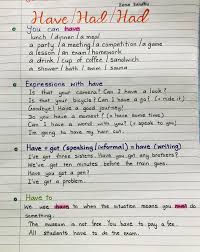 Have/Had/Had
You can have
lunch / dinner / a meal
a party / a meeting / a competition / a game
a lesson / an exam / homework
a drink / cup of coffee / sandwich
a shower / bath / swim / sauna
Expressions with have
Is that your camera? Can I have a look?
Is that your bicycle? Can I have a go? (= ride it)
Goodbye! Have a good journey!
Do you have a moment? (= have some time)
Can I have a word with you? (= speak to you)
I'm going to have my hair cut.
Have + got (speaking/informal) = have (writing)
I've got three sisters. Have you got any brothers?
We've got ten minutes before the train goes.
Have you got a pen?
I've got a problem.
Have to
We use have to when the situation means you must do
something.
The museum is not free. You have to pay a fee.
All students have to do the exam.